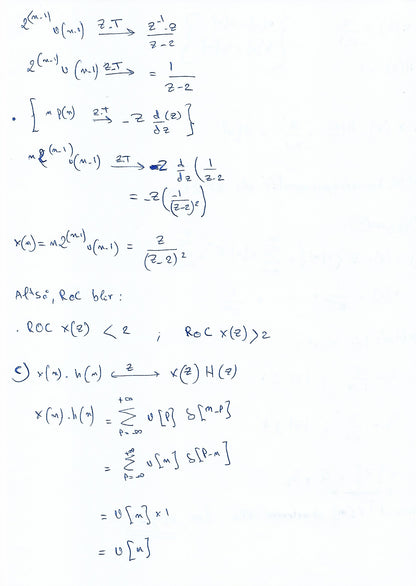 2^(n-1) u(n-1) Z.T → z^-1 . z / z-2
2^(n-1) u(n-1) Z.T → = 1 / z-2
. [ n p(n) Z.T → -z d/dz (z) }
n 2^(n-1) u(n-1) Z.T → -z d/dz ( 1 / z-2
= -z ( -1 / (z-2)² )
x(n) = n 2^(n-1) u(n-1) = z / (z-2)²
Altså, ROC blir :
. ROC x(z) < 2 ; ROC x(z) > 2
c) x(n) . h(n) ←z→ x(z) H(z)
x(n) . h(n) = +∞ ∑ p=-∞ u[p] δ[n-p]
= +∞ ∑ p=-∞ u[n] δ[p-n]
= u[n] × 1
= u[n]